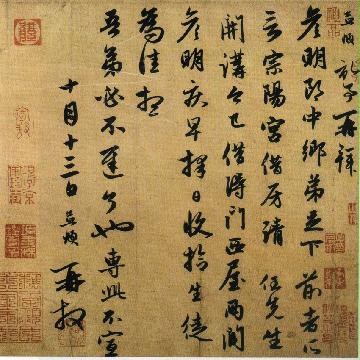 孟頫記事再拜
彥明郎中鄉弟足下前者所
言宗陽宮借房請任先生
開講今已借得門西屋兩間
彥明疾早擇日收拾生徒
為佳想
吾弟必不遲了也專此不宣
十月十三日孟頫再拜